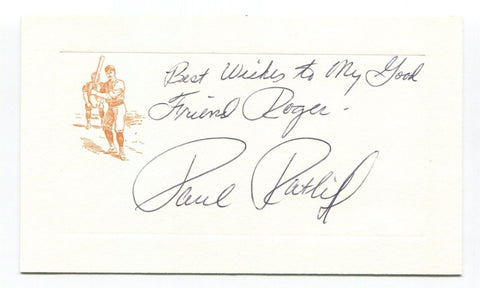 Best Wishes to My Good
Friend Roger.
Paul Ratliff